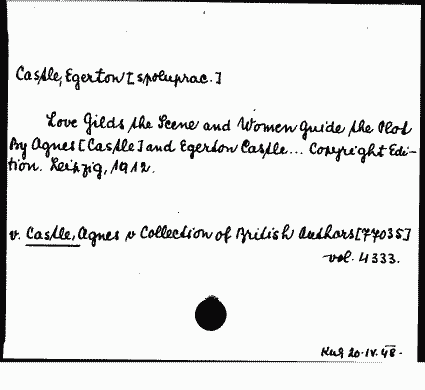 Castle, Egerton [spoluprac.]
Love Gilds the Scene and Women Guide the Plot
By Agnes [Castle] and Egerton Castle... Copyright Edi-
tion. Leipzig, 1912.
v. Castle, Agnes v Collection of British Authors [77035]
vol. 4333.
20.IV.48.